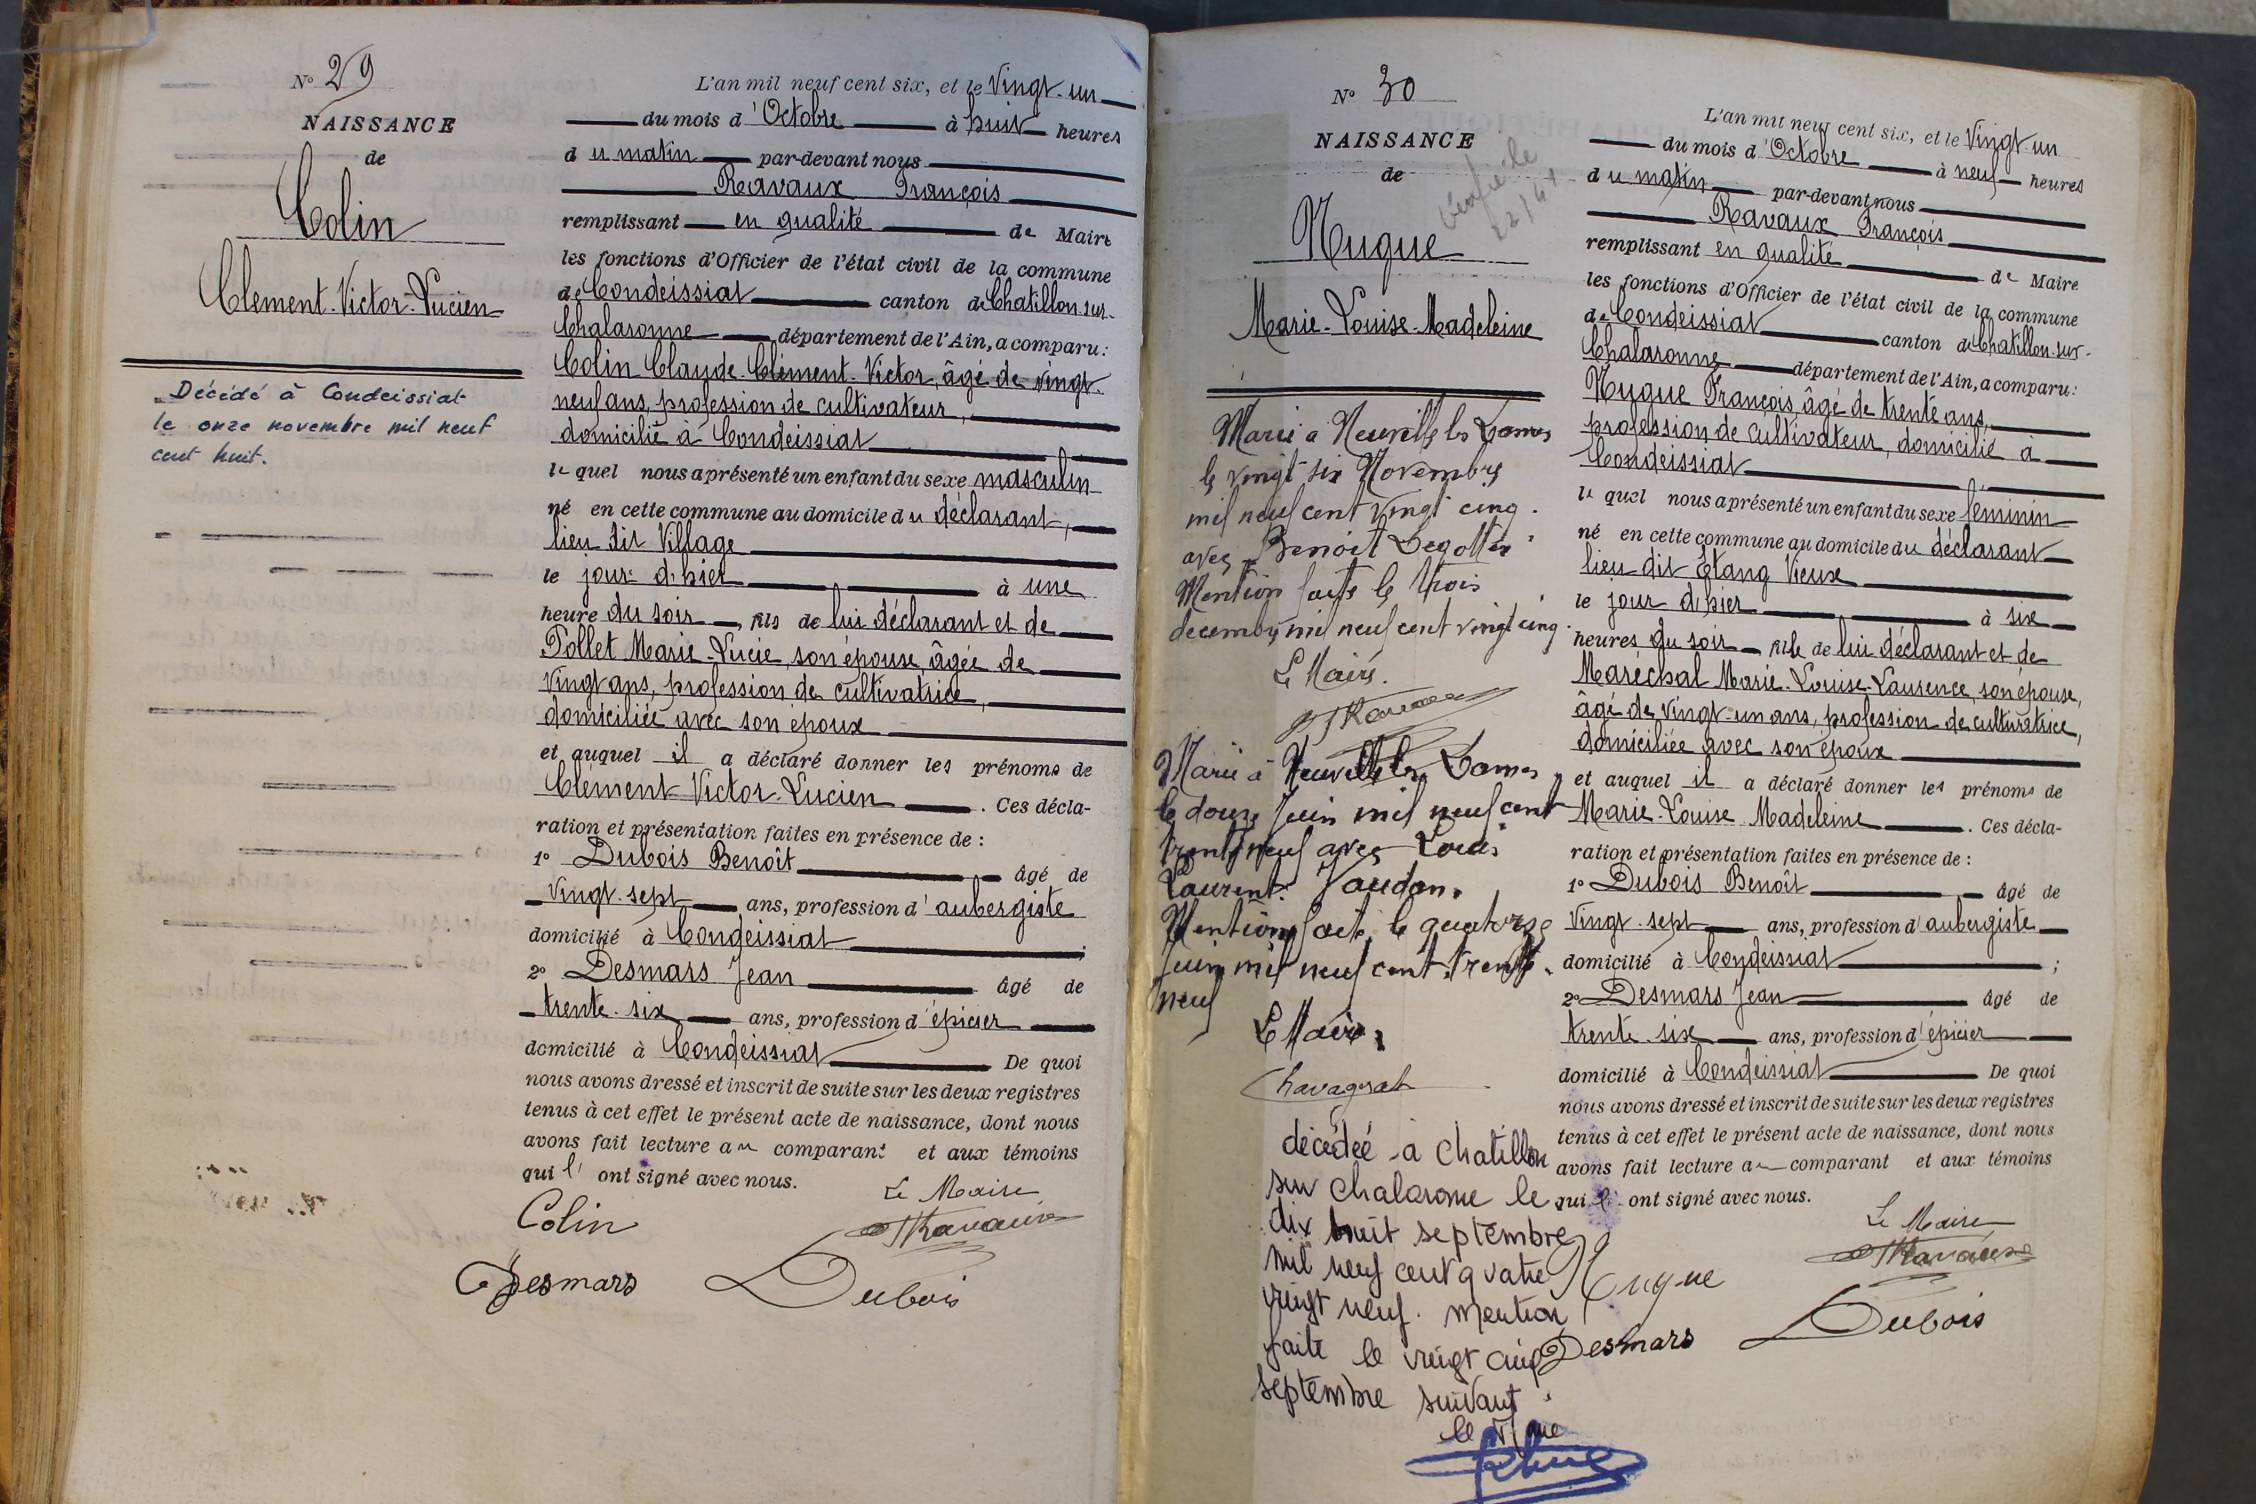 N° 29
NAISSANCE
de
Colin
Clément-Victor-Lucien
Décédé à Condeissiat
le onze novembre mil neuf
cent huit.
L'an mil neuf cent six, et le Vingt-un
du mois d'Octobre à huit heures
du matin par-devant nous
Ravaux François
remplissant en qualité de Maire
les fonctions d'Officier de l'état civil de la commune
de Condeissiat canton de Chatillon-sur-
Chalaronne département de l'Ain, a comparu:
Colin Claude-Clément-Victor, âgé de vingt-
neuf ans, profession de cultivateur,
domicilié à Condeissiat
lequel nous a présenté un enfant du sexe masculin
né en cette commune au domicile du déclarant,
lieu dit Village
le jour d'hier à une
heure du soir, fils de lui déclarant et de
Pollet Marie-Lucie, son épouse, âgée de
Vingt ans, profession de cultivatrice,
domiciliée avec son époux
et auquel il a déclaré donner les prénoms de
Clément-Victor-Lucien. Ces décla-
ration et présentation faites en présence de:
1° Dubois Benoît âgé de
Vingt-sept ans, profession d'aubergiste
domicilié à Condeissiat;
2° Desmars Jean âgé de
trente-six ans, profession d'épicier
domicilié à Condeissiat De quoi
nous avons dressé et inscrit de suite sur les deux registres
tenus à cet effet le présent acte de naissance, dont nous
avons fait lecture au comparant et aux témoins
qui l'ont signé avec nous.
Le Maire
Colin
Ravaux
Desmars
Dubois
N° 30
NAISSANCE
de
Nugue
Marie-Louise-Madeleine
Marié à Neuville les Dames
le vingt six Novembre
mil neuf cent vingt cinq.
avec Benoit Segottier
Mention faite le trois
decembre mil neuf cent vingt cinq.
Le Maire.
Ravaux
Marié à Neuville les Dames
le douze Juin mil neuf cent
trente neuf avec Louis
Laurent Vaudan.
Mention faite le quatorze
Juin mil neuf cent trente
neuf
Le Maire,
Chavagnat
décédée à Chatillon
sur chalaronne le
dix huit septembre
mil neuf cent quatre
vingt neuf. mention
faite le vingt cinq
septembre suivant
le Maire
L'an mil neuf cent six, et le Vingt-un
du mois d'Octobre à neuf heures
du matin par-devant nous
Ravaux François
remplissant en qualité de Maire
les fonctions d'Officier de l'état civil de la commune
de Condeissiat canton de Chatillon-sur-
Chalaronne département de l'Ain, a comparu:
Nugue François, âgé de trente ans,
profession de cultivateur, domicilié à
Condeissiat
lequel nous a présenté un enfant du sexe féminin
né en cette commune au domicile du déclarant
lieu dit Etang Vieux
le jour d'hier à six
heures du soir fille de lui déclarant et de
Maréchal Marie-Louise-Laurence, son épouse,
âgé de vingt-un ans, profession de cultivatrice,
domiciliée avec son époux
et auquel il a déclaré donner les prénoms de
Marie-Louise Madeleine. Ces décla-
ration et présentation faites en présence de:
1° Dubois Benoît âgé de
Vingt-sept ans, profession d'aubergiste
domicilié à Condeissiat;
2° Desmars Jean âgé de
trente-six ans, profession d'épicier
domicilié à Condeissiat De quoi
nous avons dressé et inscrit de suite sur les deux registres
tenus à cet effet le présent acte de naissance, dont nous
avons fait lecture au comparant et aux témoins
qui l'ont signé avec nous.
Le Maire
Ravaux
Nugue
Desmars
Dubois